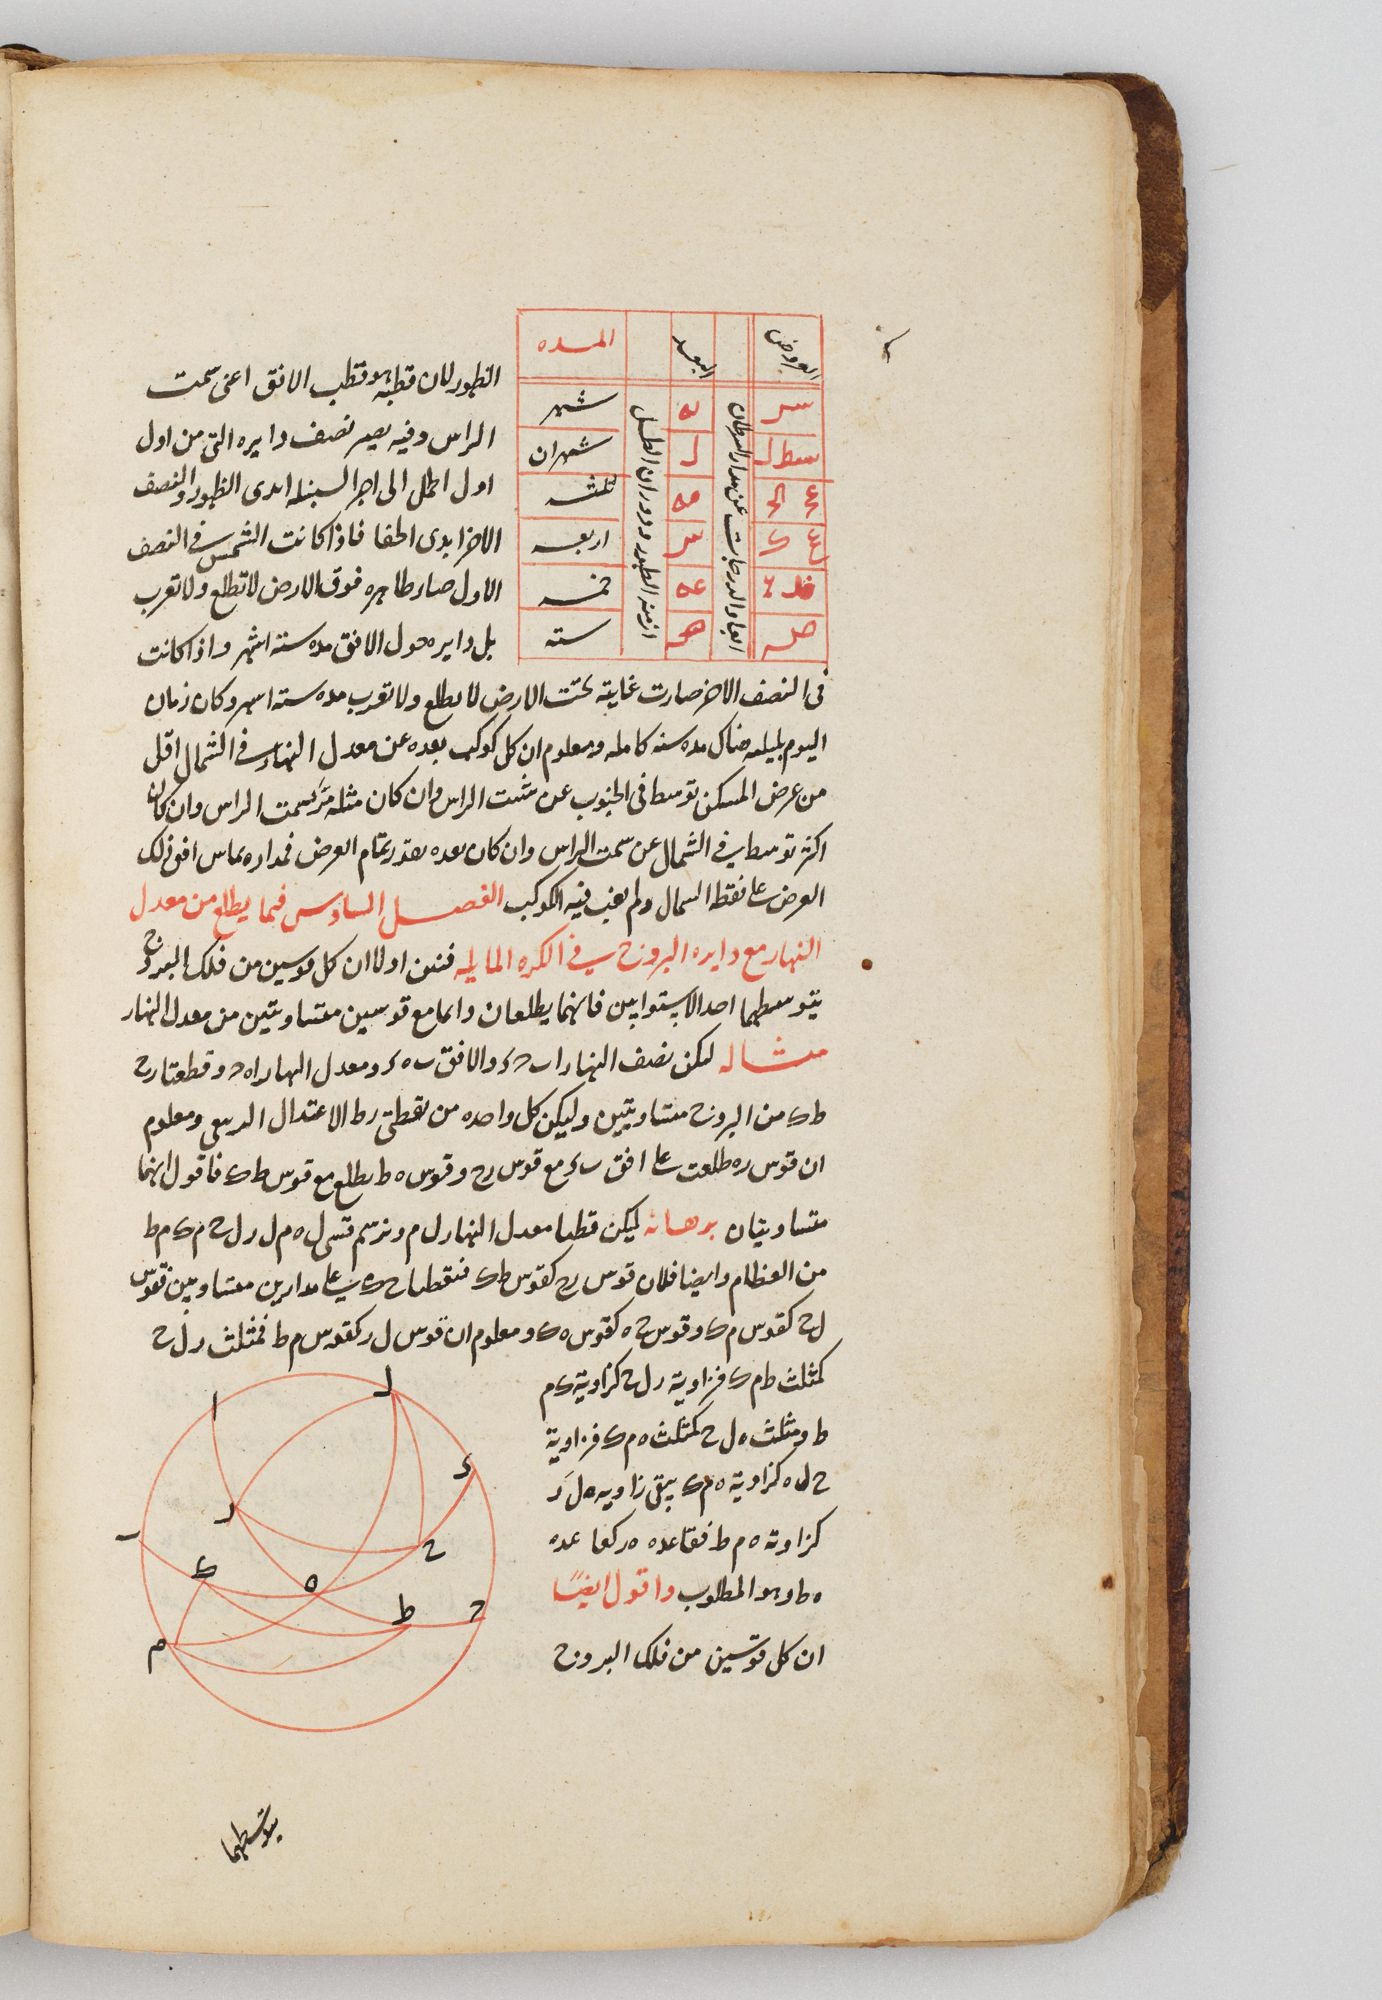 العروض البعد المده
ابعاد الدرجات عن مدار السرطان
ازمنه الظهور ودوران الظل
سر ل شهر
سط ل ل شهران
عح مه ثلثه
عح ك س اربعه
فد عه خمسه
ص سته
الظهور لان قطبه هو قطب الافق اعنى سمت
الراس وفيه يصير نصف دايره التى من اول
اول الحمل الى اخر السنبله ابدى الظهور والنصف
الاخر ابدى الخفا فاذا كانت الشمس فى النصف
الاول صار ظاهره فوق الارض لا تطلع ولا تغرب
بل دايره حول الافق مده سته اشهر واذا كانت
فى النصف الاخر صارت غايبه تحت الارض لا يطلع ولا تغرب مده سته اسهر وكان زمان
اليوم بليلته هناك مده سنه كامله ومعلوم ان كل كوكب بعده عن معدل النهار فى الشمال اقل
من عرض المسكن توسط فى الجنوب عن سمت الراس وان كان مثله مر بسمت الراس وان كان
اكثر توسط فى الشمال عن سمت الراس وان كان بعده بقدر تمام العرض فمداره يماس افق ذلك
العرض على نقطه السمال ولم يغب فيه الكوكب الفصل السادس فيما يطلع من معدل
النهار مع دايره البروج فى الكره المايله فنبين اولا ان كل قوسين من فلك البروج
يتوسطهما احد الاستوايين فانهما يطلعان دايما مع قوسين متساويتين من معدل النهار
مثاله ليكن نصف النهار ا ب ح د والافق ب ه د ومعدل النهار ا ه ح وقطعتا ر ح
ط ك من البروج متساويتين وليكن كل واحده من نقطتى ر ط الاعتدال الربيعى ومعلوم
ان قوس ر ه طلعت على افق ب د مع قوس ر ح وقوس ه ط يطلع مع قوس ط ك فاقول انهما
متساويتان برهانه ليكن قطبا معدل النهار ل م ونرسم قسى ل ه م ل ر ل ح م ك م ط
من العظام وايضا فلان قوس ر ح كقوس ط ك فنقطتا ح ك على مدارين متساويين فقوس
ل ح كقوس م ك وقوس ح ه كقوس ه ك ومعلوم ان قوس ل ر كقوس م ط فمثلث ر ل ح
كمثلث ط م ك فزاوية ر ل ح كزاوية ك م
ط ومثلث ه ل ح كمثلث ه م ك فزاوية
ح ل ه كزاوية ه م ك يبقى زاويه ه ل ر
كزاوية ه م ط فقاعده ه ر كقاعده
ه ط وهو المطلوب واقول ايضا
ان كل قوسين من فلك البروج
ا
ل
د
ر
ح
ب
ك
ه
ط
ح
م
يتوسطهما